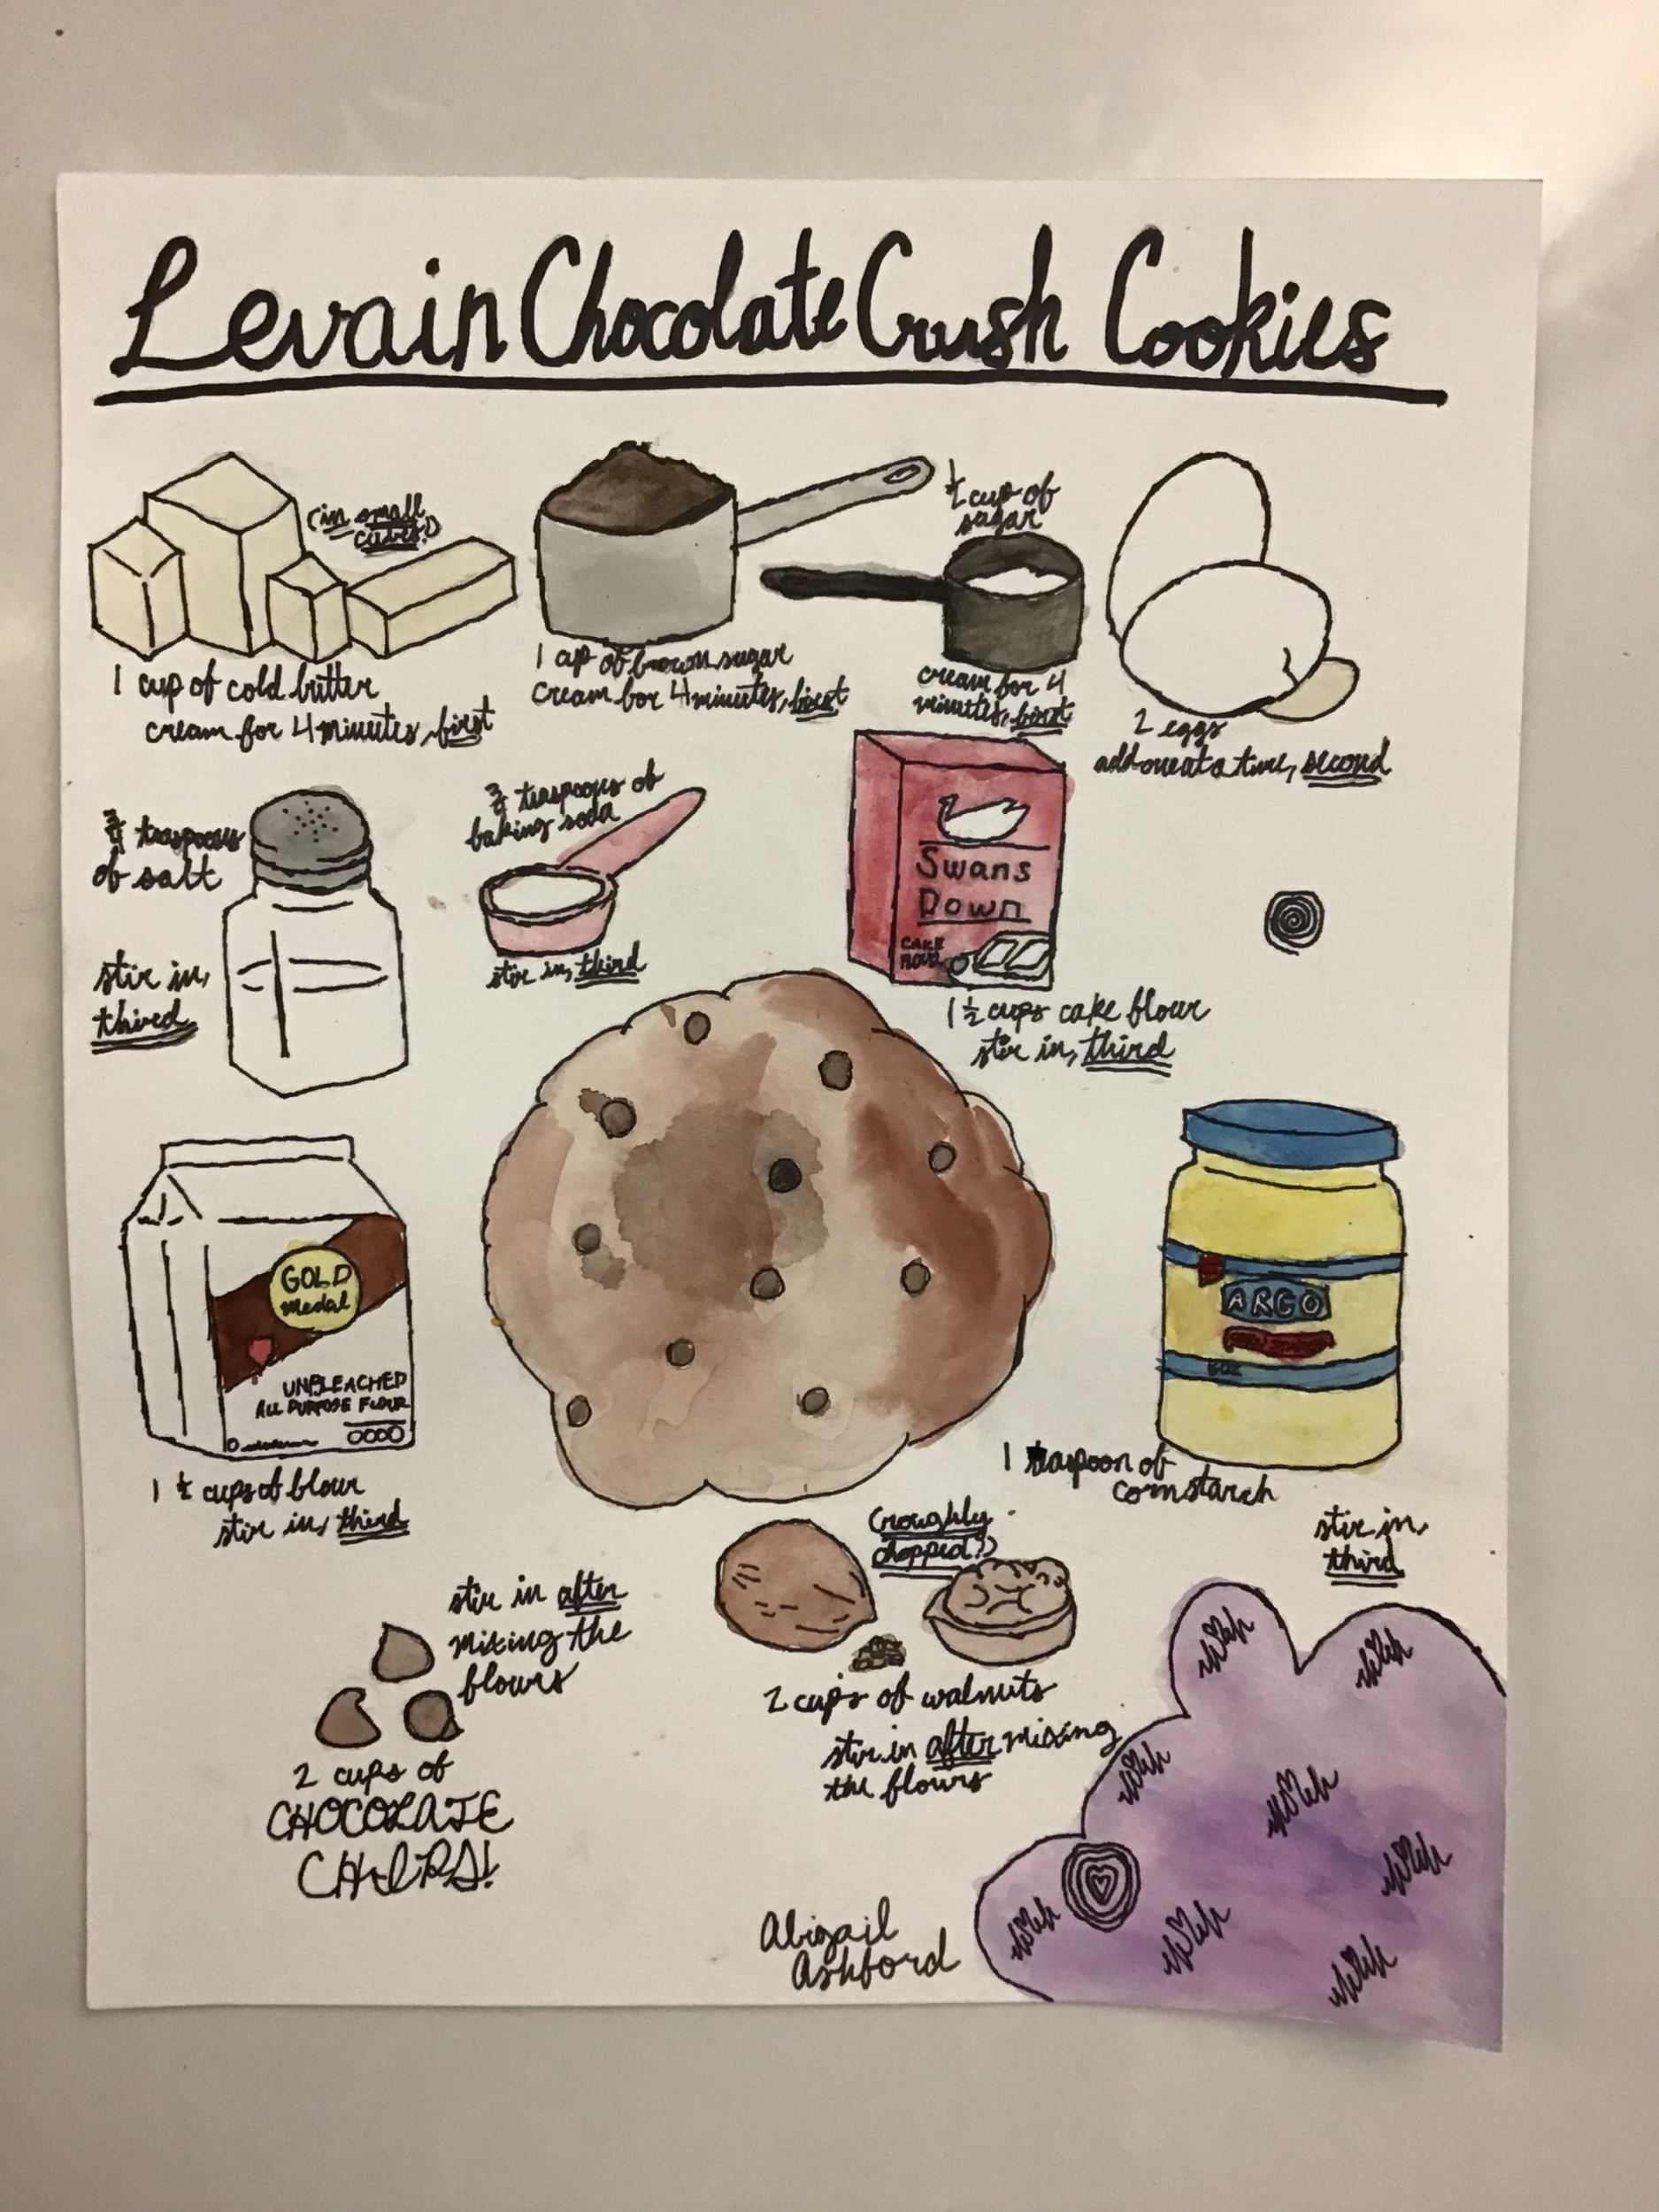 Levain Chocolate Crush Cookies
(in small
cubes!)
1 cup of cold butter
cream for 4 minutes, first
1 cup of brown sugar
cream for 4 minutes, first
½ cup of
sugar
cream for 4
minutes, first
2 eggs
add one at a time, second
¾ teaspoons
of salt
stir in,
third
¾ teaspoons of
baking soda
stir in, third
Swans
Down
CAKE
FLOUR
1 ½ cups cake flour
stir in, third
GOLD
Medal
UNBLEACHED
ALL PURPOSE FLOUR
1 ½ cups of flour
stir in, third
ARGO
1 teaspoon of
cornstarch
stir in,
third
(roughly
chopped!)
2 cups of walnuts
stir in after mixing
the flours
stir in after
mixing the
flours
2 cups of
CHOCOLATE
CHIPS!
Abigail
Ashford